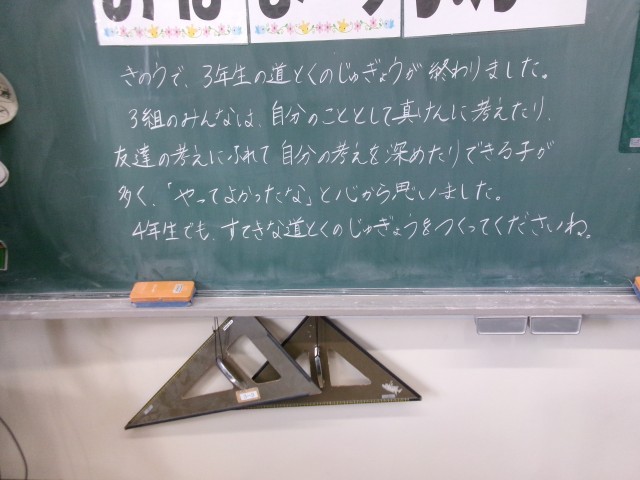 きのうで、3年生の道とくのじゅぎょうが終わりました。
3組のみんなは、自分のこととして真けんに考えたり、
友達の考えにふれて自分の考えを深めたりできる子が
多く、「やってよかったな」と心から思いました。
4年生でも、すてきな道とくのじゅぎょうをつくってくださいね。